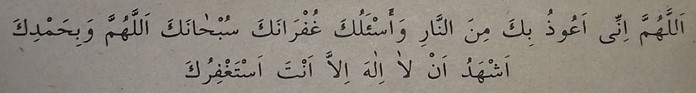 اَللَّهُمَّ اِنِّى اَعُوذُ بِكَ مِنَ النَّارِ وَأَسْئَلُكَ غُفْرَانَكَ سُبْحَانَكَ اَللَّهُمَّ وَبِحَمْدِكَ
اَشْهَدُ اَنْ لاٰ اِلٰهَ اِلاَّ اَنْتَ اَسْتَغْفِرُكَ